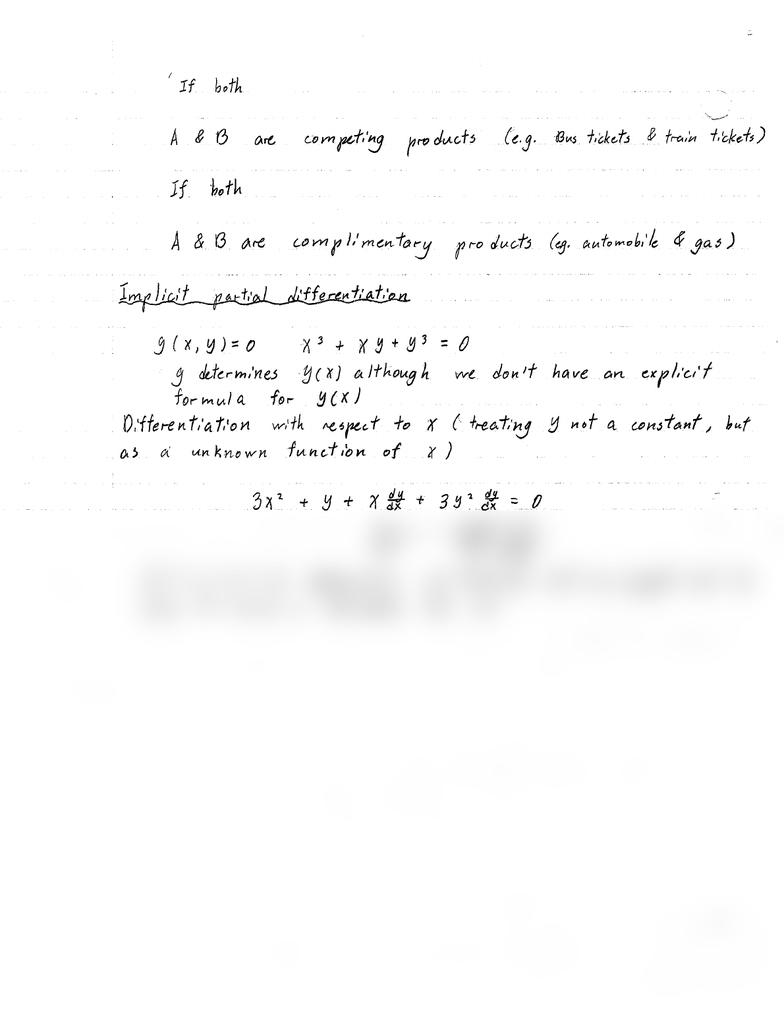 If both
A & B are competing products (e.g. Bus tickets & train tickets)
If both
A & B are complimentary products (eg. automobile & gas)
Implicit partial differentiation
g(x,y)=0 x³ + xy + y³ = 0
g determines y(x) although we don't have an explicit
formula for y(x)
Differentiation with respect to x (treating y not a constant, but
as a unknown function of x)
3x² + y + x dy/dx + 3y² dy/dx = 0